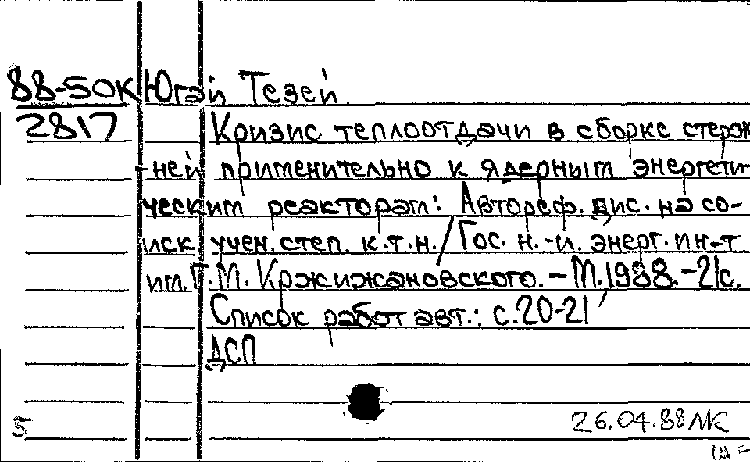 88-50К Югай Тезей.
2817 Кризис теплоотдачи в сборке стерж
ней применительно к ядерным энергети
ческим реакторам: Автореф. дис. на со-
иск учен. степ. к.т.н. / Гос. н.-и. энерг. ин-т
им. Г. М. Кржижановского. – М. 1988. – 21с.
Список работ авт.: с. 20-21
ДСП
26.04.88